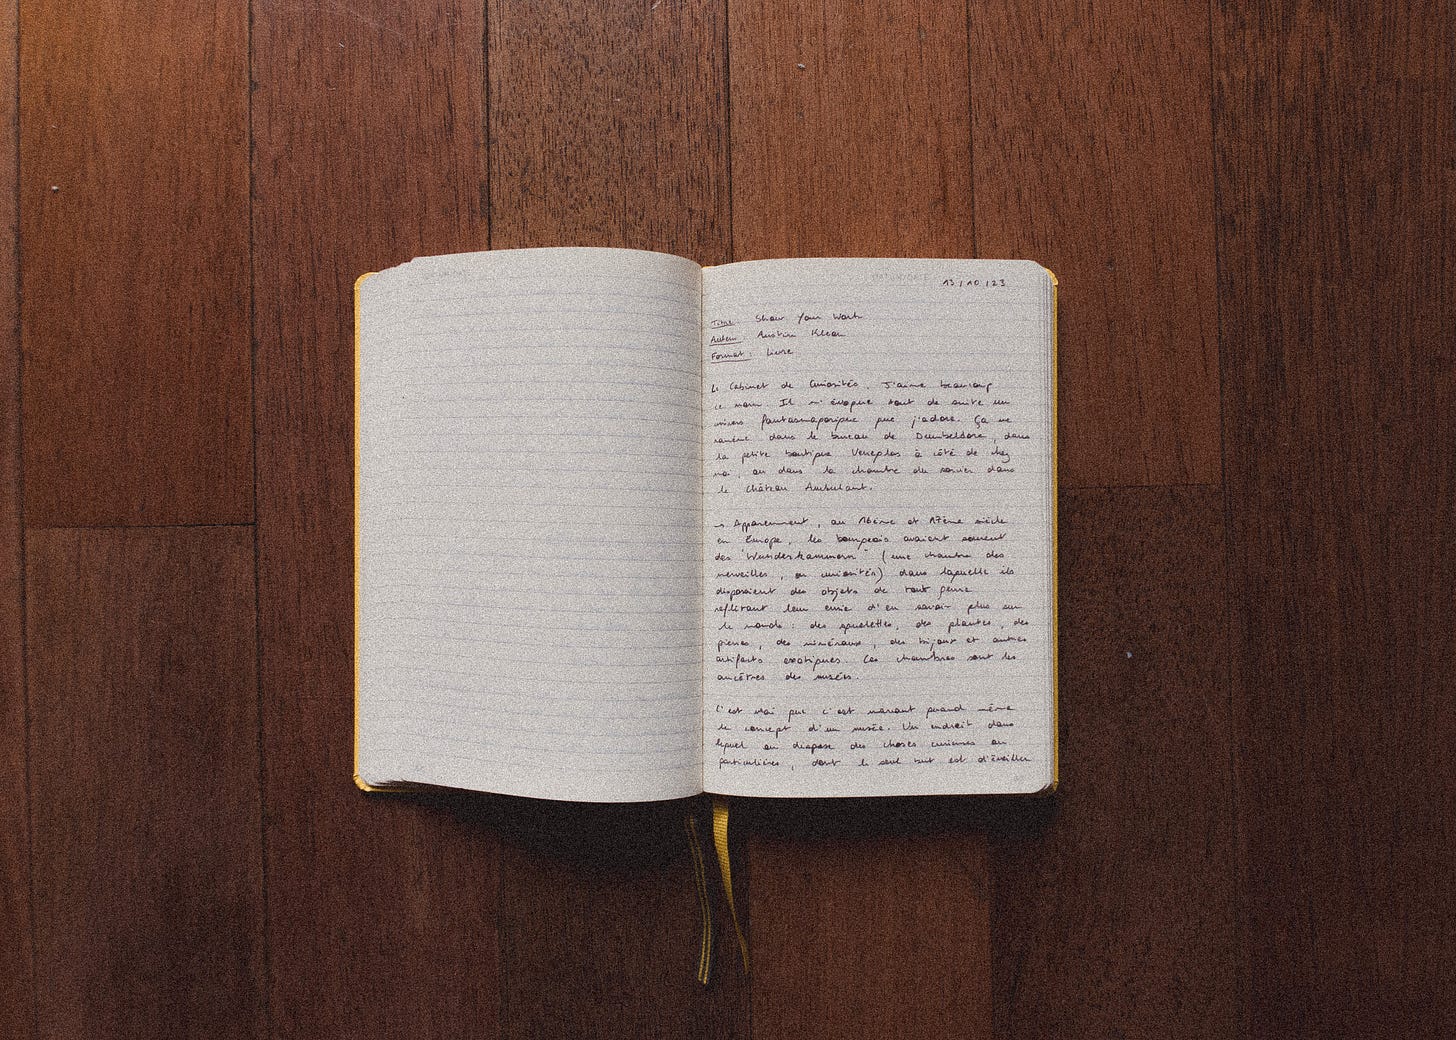 13/10/23
Titre : Show Your Work
Auteur : Austin Kleon
Format : Livre
Le Cabinet de Curiosités. J'aime beaucoup
ce nom. Il m'évoque tout de suite un
univers fantasmagorique que j'adore. Ça me
ramène dans le bureau de Dumbeldore, dans
la petite boutique à côté de chez
moi, ou dans la chambre du sorcier dans
le château Ambulant.
→ Apparemment, au 16ème et 17ème siècle
en Europe, les bourgeois avaient souvent
des "Wunderkammern" (une chambre des
merveilles, ou curiosités) dans laquelle ils
disposaient des objets de tout genre
reflétant leur envie d'en savoir plus sur
le monde : des squelettes, des plantes, des
pierres, des minéraux, des bijoux et autres
artifacts exotiques. Ces chambres sont les
ancêtres des musées.
C'est vrai que c'est marrant quand même
le concept d'un musée. Un endroit dans
lequel on dispose des choses curieuses ou
particulières, dont le seul but est d'éveiller